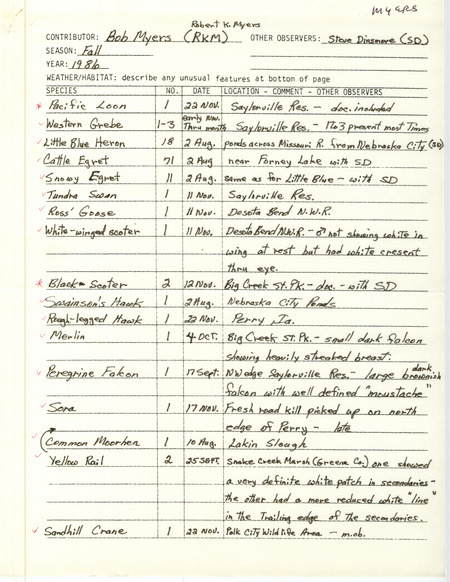 MYERS
Robert K. Myers
CONTRIBUTOR: Bob Myers (RKM) OTHER OBSERVERS: Steve Dinsmore (SD)
SEASON: Fall
YEAR: 1986
WEATHER/HABITAT: describe any unusual features at bottom of page
SPECIES NO. DATE LOCATION - COMMENT - OTHER OBSERVERS
* Pacific Loon 1 22 NOV. Saylorville Res. - doc. included
early Nov.
Western Grebe 1-3 Thru month Saylorville Res. - 1 to 3 present most Times
Little Blue Heron 18 2 Aug. ponds across Missouri R. from Nebraska City (SD)
Cattle Egret 71 2 Aug near Forney Lake with SD
Snowy Egret 11 2 Aug. same as for Little Blue - with SD
Tundra Swan 1 11 Nov. Saylorville Res.
Ross' Goose 1 11 Nov. Desoto Bend N.W.R.
White-winged scoter 1 11 Nov. Desoto Bend N.W.R. - ♂ not showing white in
wing at rest but had white cresent
thru eye.
* Black Scoter 2 12 Nov. Big Creek St. Pk. - doc. - with SD
Swainson's Hawk 1 2 Aug. Nebraska City Ponds
Rough-legged Hawk 1 22 Nov. Perry Ia.
Merlin 1 4 OCT. Big Creek ST. Pk. - small dark falcon
showing heavily streaked breast.
dark
Peregrine Falcon 1 17 Sept. NW edge Saylorville Res. - large brownish
falcon with well defined "moustache"
Sora 1 17 NOV. Fresh road kill picked up on north
edge of Perry - late
Common Moorhen 1 10 Aug. Lakin Slough
Yellow Rail 2 25 SEPT. Snake Creek Marsh (Greene Co.) one showed
a very definite white patch in secondaries -
the other had a more reduced white "line"
in the Trailing edge of the secondaries.
Sandhill Crane 1 22 NOV. Polk City Wildlife Area - m.ob.